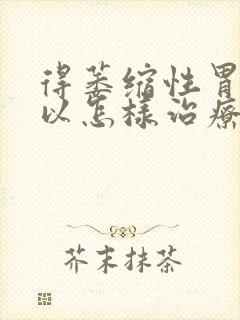 得萎缩性胃
以怎样治疗
芥末抹茶